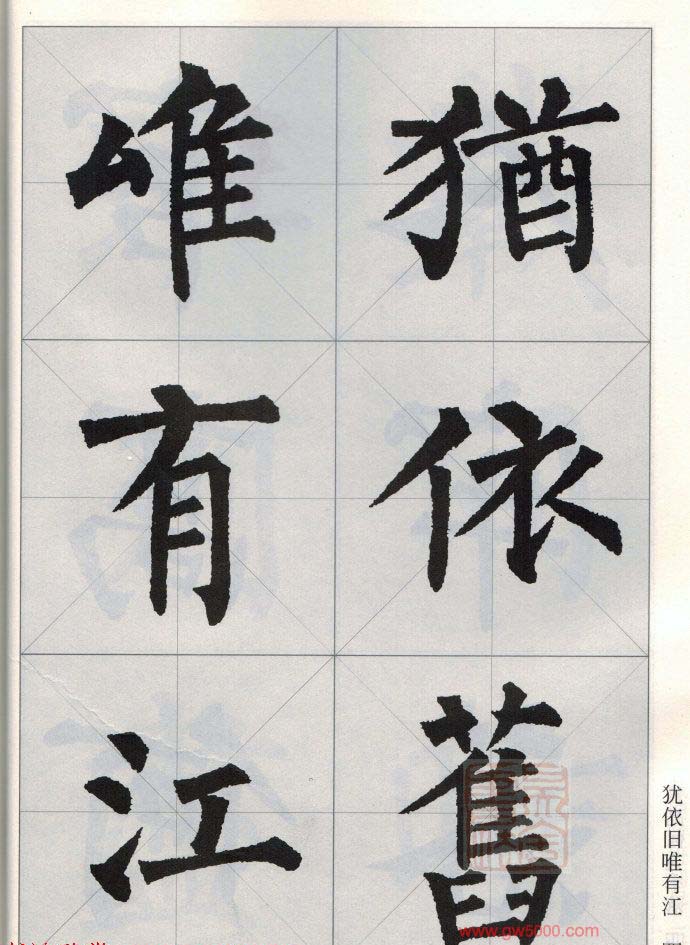 猶依舊
唯有江
犹依旧唯有江
www.gw5000.com